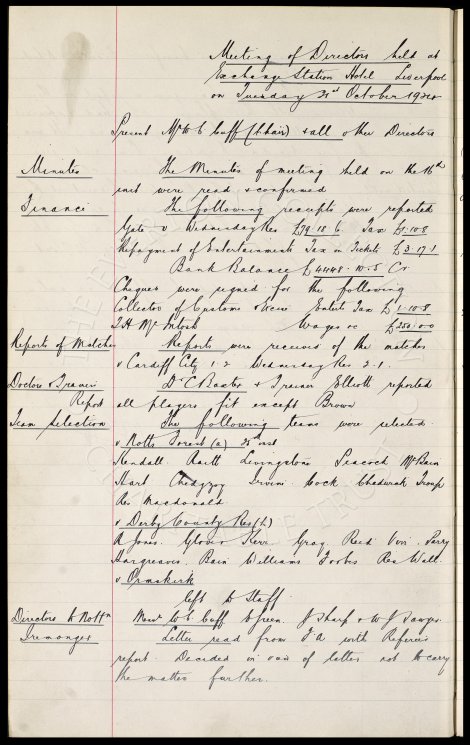 Meeting of Directors held at
Exchange Station Hotel Liverpool
on Tuesday 21st October 1924
Present Mr W C Cuff (Chair) & all other Directors
Minutes
The Minutes of meeting held on the 16th
inst were read & confirmed
Finance
The following receipts were reported
Gate v Wednesday Res £79.18.6 Tax 1.10.8
Repayment of Entertainments Tax in Tickets £3.17.1
Bank Balance £4448.10.5 Cr
Cheques were signed for the following
Collector of Customs & Excise Entert Tax £1.10.8
T.H. McIntosh Wages ac £250.0.0
Reports of Matches
Reports were received of the matches
v Cardiff City 1-2 Wednesday Res 2-1
Doctors & Trainers
Report
Dr C Baxter & Trainer Elliott reported
all players fit except Brown
Team Selection
The following teams were selected
v Notts Forest (a) 25th inst
Kendall Raitt Livingstone Peacock McBain
Hart Chedgzoy Irvine Cock Chadwick Troup
Res Macdonald
v Derby County Res (h)
R Jones Glover Kerr Gray Reid Virr Parry
Hargreaves Bain Williams Forbes Res Wall
v Ormskirk
left to Staff
Directors to Nottm
Messrs W C Cuff B Green J Sharp & W J Sawyer
Iremonger
Letter read from F A with Referee's
report. Decided in view of latter not to carry
the matter further.